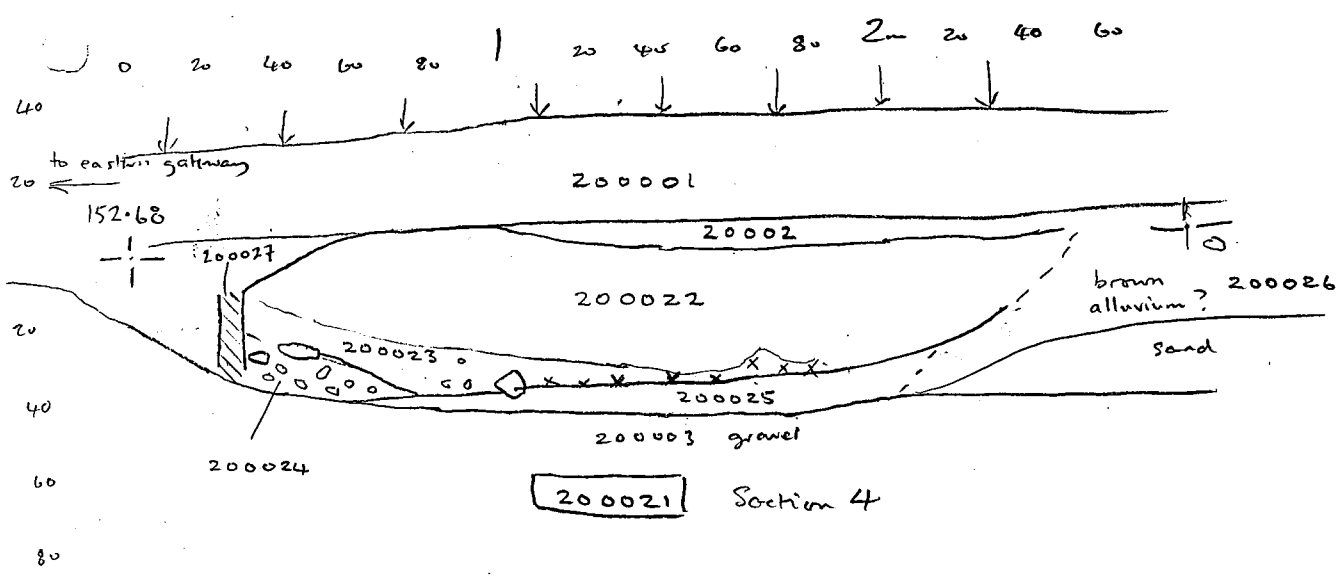 0 20 40 60 80 1 20 40 60 80 2m 20 40 60
40
to eastern gateway
20
200001
152.68
20002
200027
0
200022
brown 200026
alluvium?
20
200023
sand
200025
40
200003 gravel
200024
60
200021 Section 4
80